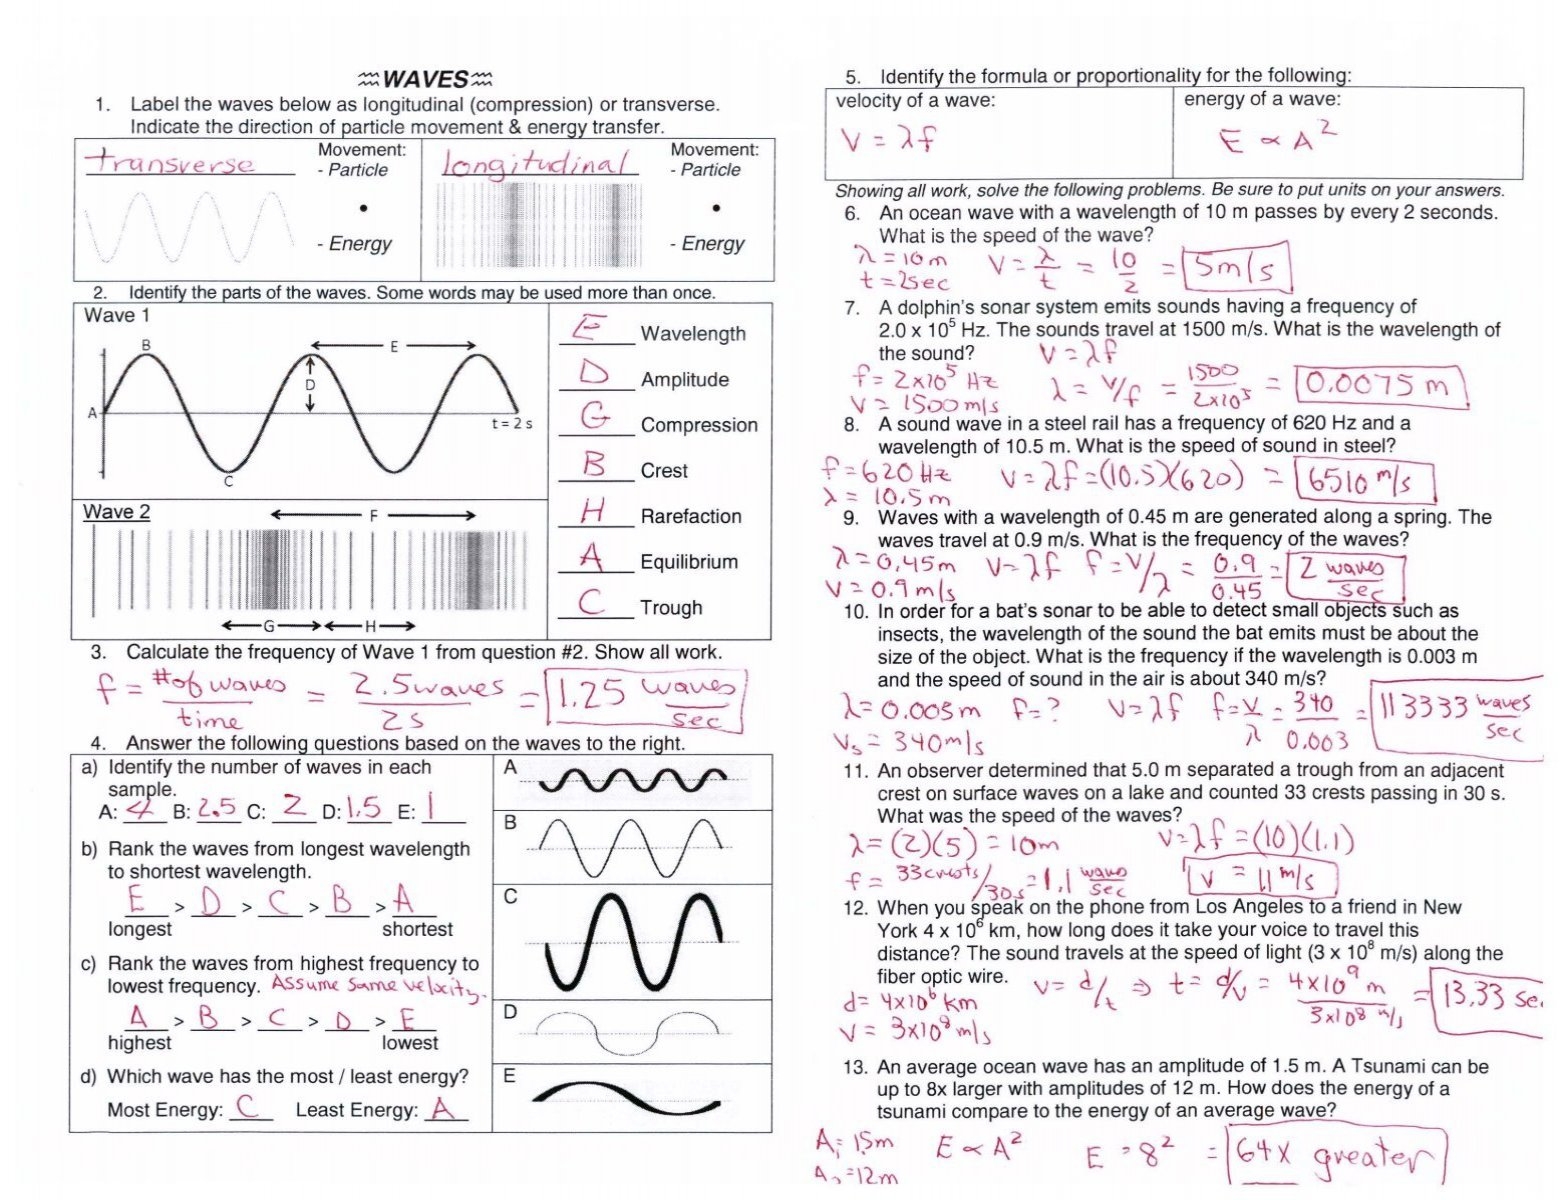 WAVES
1. Label the waves below as longitudinal (compression) or transverse.
Indicate the direction of particle movement & energy transfer.
transverse
Movement:
- Particle
- Energy
longitudinal
Movement:
- Particle
- Energy
2. Identify the parts of the waves. Some words may be used more than once.
Wave 1
B
E
D
A
t = 2 s
C
Wave 2
F
G
H
E Wavelength
D Amplitude
G Compression
B Crest
H Rarefaction
A Equilibrium
C Trough
3. Calculate the frequency of Wave 1 from question #2. Show all work.
f = #of waves / time = 2.5 waves / 2s = 1.25 waves / sec
4. Answer the following questions based on the waves to the right.
a) Identify the number of waves in each
sample.
A: 4 B: 2.5 C: 2 D: 1.5 E: 1
b) Rank the waves from longest wavelength
to shortest wavelength.
E > D > C > B > A
longest shortest
c) Rank the waves from highest frequency to
lowest frequency. Assume same velocity.
A > B > C > D > E
highest lowest
d) Which wave has the most / least energy?
Most Energy: C Least Energy: A
A
B
C
D
E
5. Identify the formula or proportionality for the following:
velocity of a wave:
V = λf
energy of a wave:
E ∝ A²
Showing all work, solve the following problems. Be sure to put units on your answers.
6. An ocean wave with a wavelength of 10 m passes by every 2 seconds.
What is the speed of the wave?
λ = 10m V = λ/t = 10/2 = 5m/s
t = 2sec
7. A dolphin's sonar system emits sounds having a frequency of
2.0 x 10⁵ Hz. The sounds travel at 1500 m/s. What is the wavelength of
the sound? V = λf
f = 2x10⁵ Hz λ = V/f = 1500 / 2x10⁵ = 0.0075 m
V = 1500m/s
8. A sound wave in a steel rail has a frequency of 620 Hz and a
wavelength of 10.5 m. What is the speed of sound in steel?
f = 620 Hz V = λf = (10.5)(620) = 6510 m/s
λ = 10.5m
9. Waves with a wavelength of 0.45 m are generated along a spring. The
waves travel at 0.9 m/s. What is the frequency of the waves?
λ = 0.45m V = λf f = V/λ = 0.9 / 0.45 = 2 waves / sec
V = 0.9m/s
10. In order for a bat's sonar to be able to detect small objects such as
insects, the wavelength of the sound the bat emits must be about the
size of the object. What is the frequency if the wavelength is 0.003 m
and the speed of sound in the air is about 340 m/s?
λ = 0.003m f = ? V = λf f = V/λ = 340 / 0.003 = 113333 waves / sec
Vs = 340m/s
11. An observer determined that 5.0 m separated a trough from an adjacent
crest on surface waves on a lake and counted 33 crests passing in 30 s.
What was the speed of the waves?
λ = (2)(5) = 10m V = λf = (10)(1.1)
f = 33crests/30s = 1.1 waves / sec V = 11 m/s
12. When you speak on the phone from Los Angeles to a friend in New
York 4 x 10⁶ km, how long does it take your voice to travel this
distance? The sound travels at the speed of light (3 x 10⁸ m/s) along the
fiber optic wire. V = d/t ⇒ t = d/v = 4x10⁹ m / 3x10⁸ m/s = 13.33 se
d = 4x10⁶ km
V = 3x10⁸ m/s
13. An average ocean wave has an amplitude of 1.5 m. A Tsunami can be
up to 8x larger with amplitudes of 12 m. How does the energy of a
tsunami compare to the energy of an average wave?
A₁ = 1.5m E ∝ A² E = 8² = 64x greater
A₂ = 12m